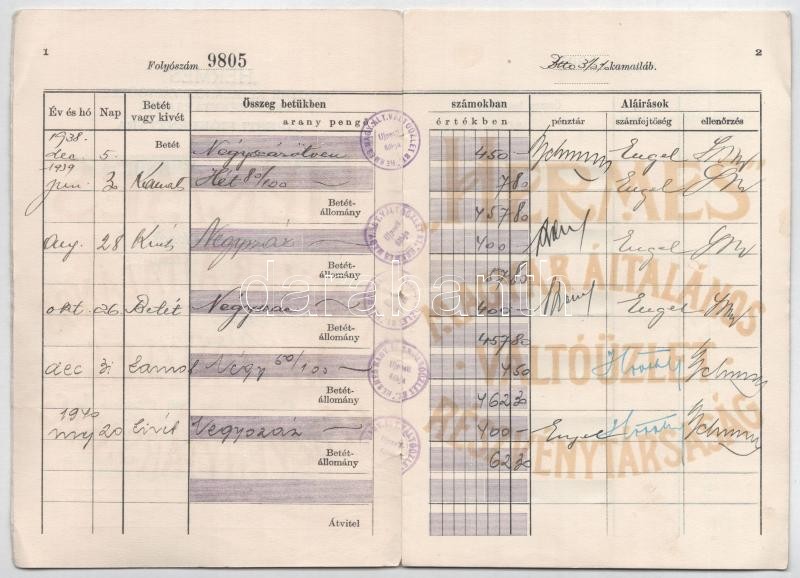 1
2
Folyószám 9805
kamatláb.
Év és hó Nap Betét vagy kivét Összeg betükben arany pengő számokban értékben Aláirások pénztár számfejtőség ellenőrzés
1938. dec. 5. Betét Négyszázötven 450 - Engel
1939 jun. 30 Kamat Hét 80/100 7 80 Engel
Betét-állomány 457 80
aug. 28 Kivét Négyszáz 400 Engel
Betét-állomány 57 80
okt. 26. Betét Négyszáz 400 Engel
Betét-állomány 457 80
dec 31 Kamat Négy 50/100 4 50
Betét-állomány 462 30
1940 20 Kivét Négyszáz 400 - Engel
Betét-állomány 62 30
Átvitel
HERMES
MAGYAR ÁLTALÁNOS
VÁLTÓÜZLET
RÉSZVÉNYTÁRSASÁG
darabanth.com